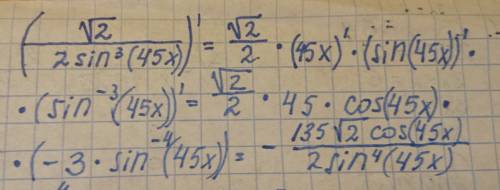 (√2 / 2sin³(45x))' = √2/2 · (45x)' · (sin(45x))' ·
· (sin⁻³(45x))' = √2/2 · 45 · cos(45x) ·
· (-3 · sin⁻⁴(45x) = - 135√2 cos(45x) / 2sin⁴(45x)